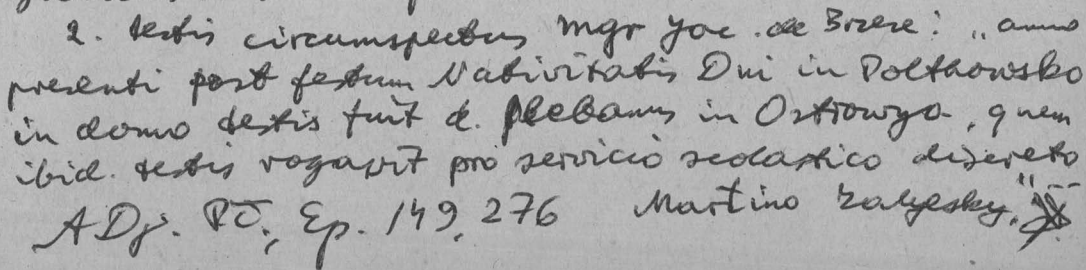 2. testis circumspectus mgr Jac. de Brzeze: „anno
presenti post festum Nativitatis Dni in Polthowsko
in domo testis fuit d. plebanus in Ostrowya, quem
ibid. testis rogavit pro servicio scolastico discreto
ADj. PŁ., Ep. 149, 276 Martino Zalesky."